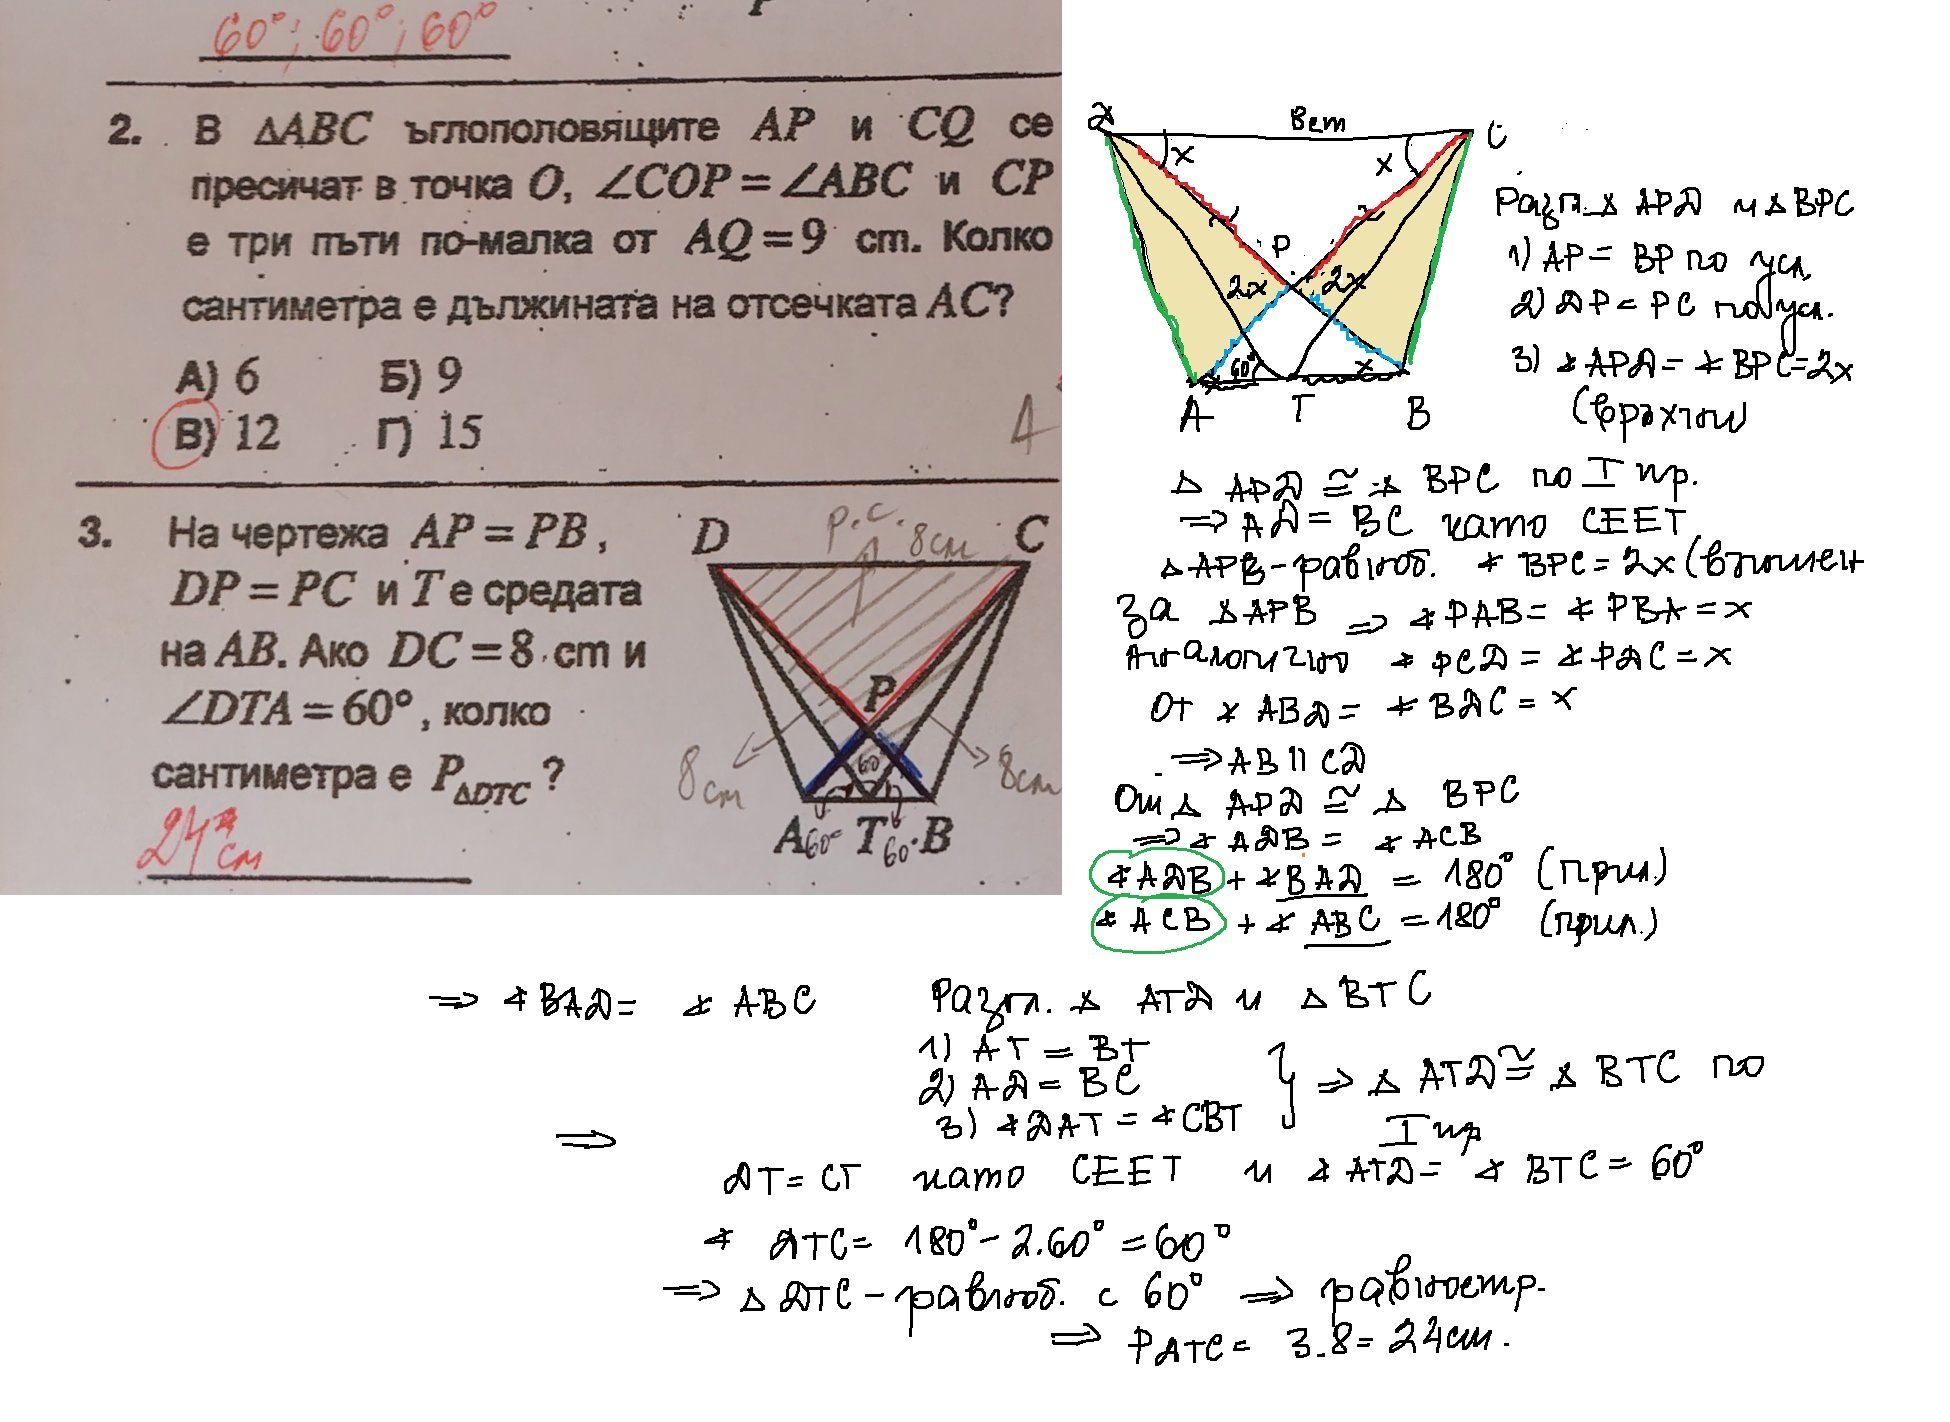 60°; 60°; 60°
2. В ΔABC ъглополовящите AP и CQ се
пресичат в точка O, ∠COP = ∠ABC и CP
е три пъти по-малка от AQ = 9 cm. Колко
сантиметра е дължината на отсечката AC?
А) 6 Б) 9
В) 12 Г) 15
4
3. На чертежа AP = PB,
DP = PC и T е средата
на AB. Ако DC = 8 cm и
∠DTA = 60°, колко
сантиметра е P ΔDTC ?
24 см
D р.с. 8см C
P
8см 60 8см
A 60° T 60° B
D 8cm C
x x
P
2x 2x
x 60° x
A T B
Разгл. Δ APD и Δ BPC
1) AP = BP по усл.
2) DP = PC по усл.
3) ∢ APD = ∢ BPC = 2x
(връхни)
Δ APD ≅ Δ BPC по I пр.
⇒ AD = BC като СЕЕТ
Δ APB - равноб. ∢ BPC = 2x (външен
за Δ APB ⇒ ∢ PAB = ∢ PBA = x
Аналогично ∢ PCD = ∢ PDC = x
От ∢ ABD = ∢ BDC = x
⇒ AB || CD
От Δ APD ≅ Δ BPC
⇒ ∢ ADB = ∢ ACB
∢ ADB + ∢ BAD = 180° (прил.)
∢ ACB + ∢ ABC = 180° (прил.)
⇒ ∢ BAD = ∢ ABC
Разгл. Δ ATD и Δ BTC
1) AT = BT
2) AD = BC
3) ∢ DAT = ∢ CBT } ⇒ Δ ATD ≅ Δ BTC по
I пр
⇒
DT = CT като СЕЕТ и ∢ ATD = ∢ BTC = 60°
∢ DTC = 180° - 2.60° = 60°
⇒ Δ DTC - равноб. с 60° ⇒ равностр.
⇒ P DTC = 3.8 = 24cm.